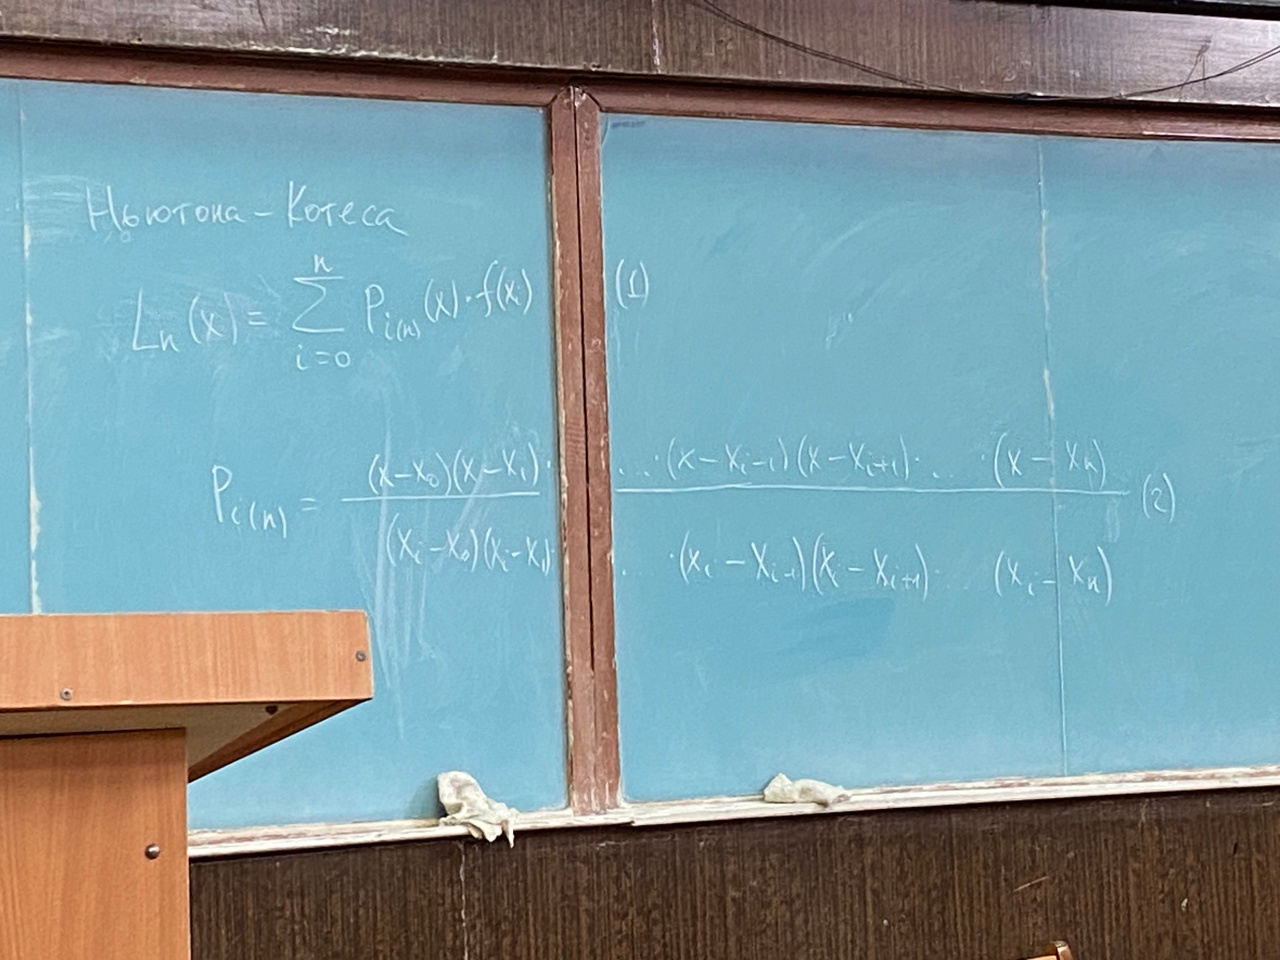 Ньютона - Котеса
Lₙ(x) = ∑ᵢ₌₀ⁿ Pᵢ₍ₙ₎(x)·f(xᵢ) (1)
Pᵢ₍ₙ₎ = (x-x₀)(x-x₁)· ... ·(x-xᵢ₋₁)(x-xᵢ₊₁)· ... ·(x-xₙ) (2)
(xᵢ-x₀)(xᵢ-x₁)· ... ·(xᵢ-xᵢ₋₁)(xᵢ-xᵢ₊₁)· ... (xᵢ-xₙ)